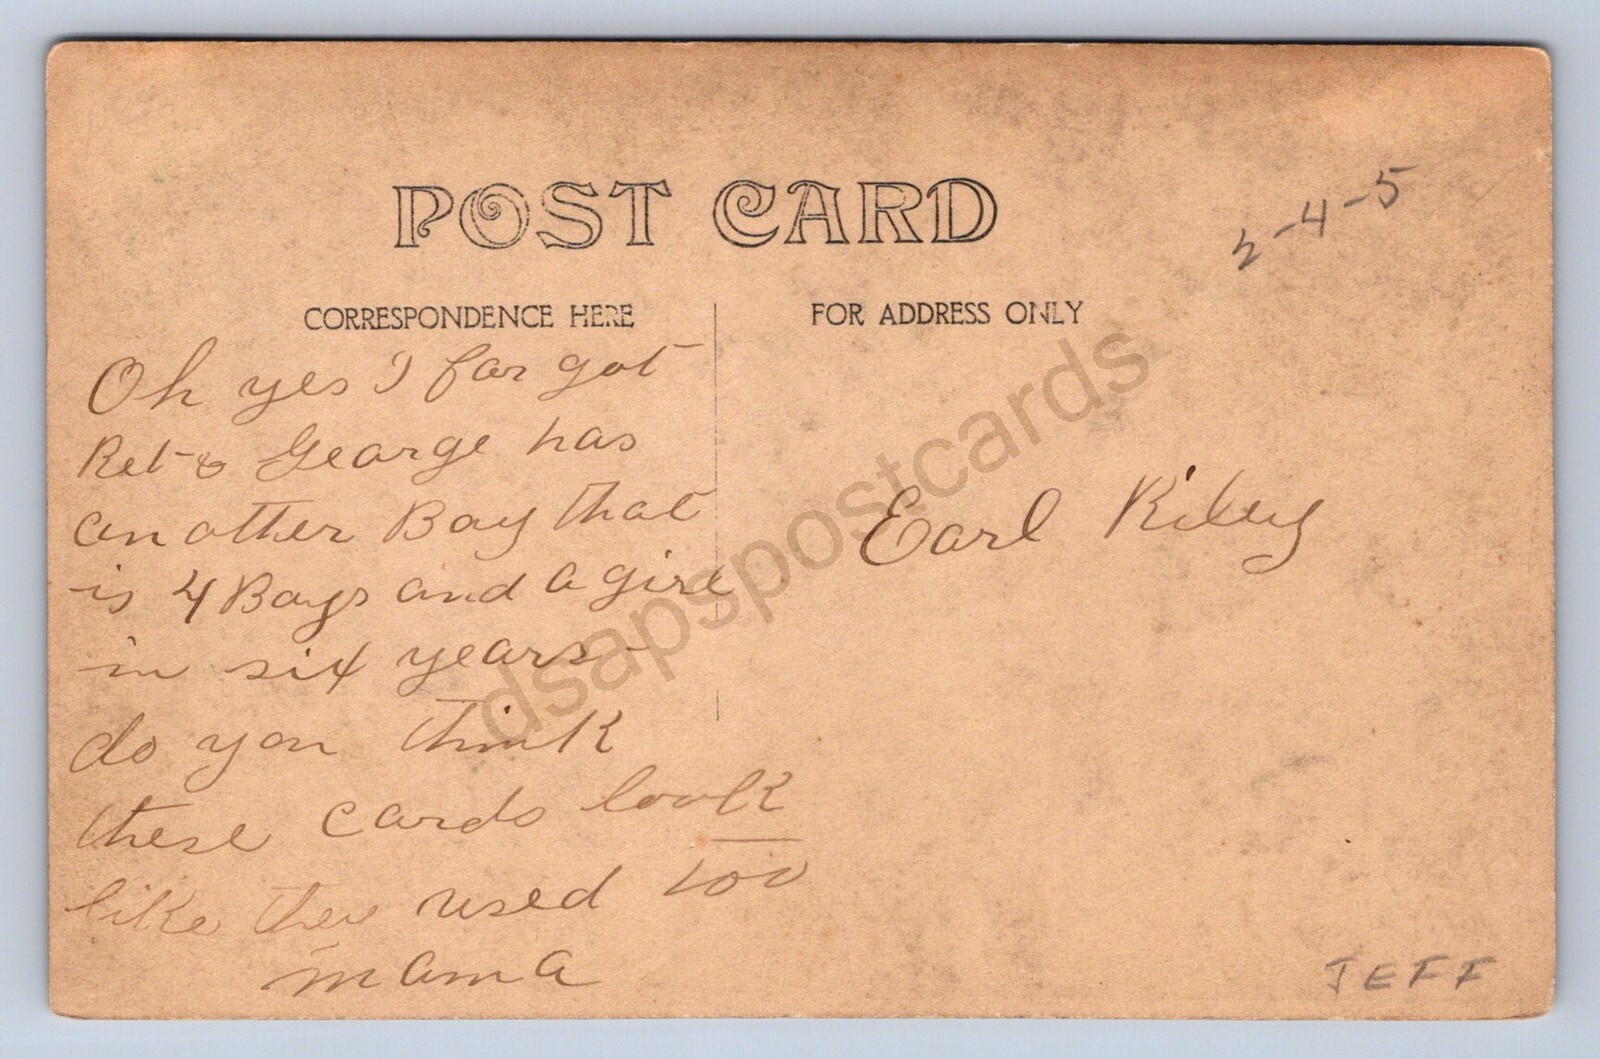 POST CARD
2-4-5
CORRESPONDENCE HERE
FOR ADDRESS ONLY
Oh yes I for got
Ret & George has
an other Boy that
is 4 Boys and a girl
in six years-
do you think
these cards look
like they used too
mama
Earl Riley
JEFF
dsapspostcards